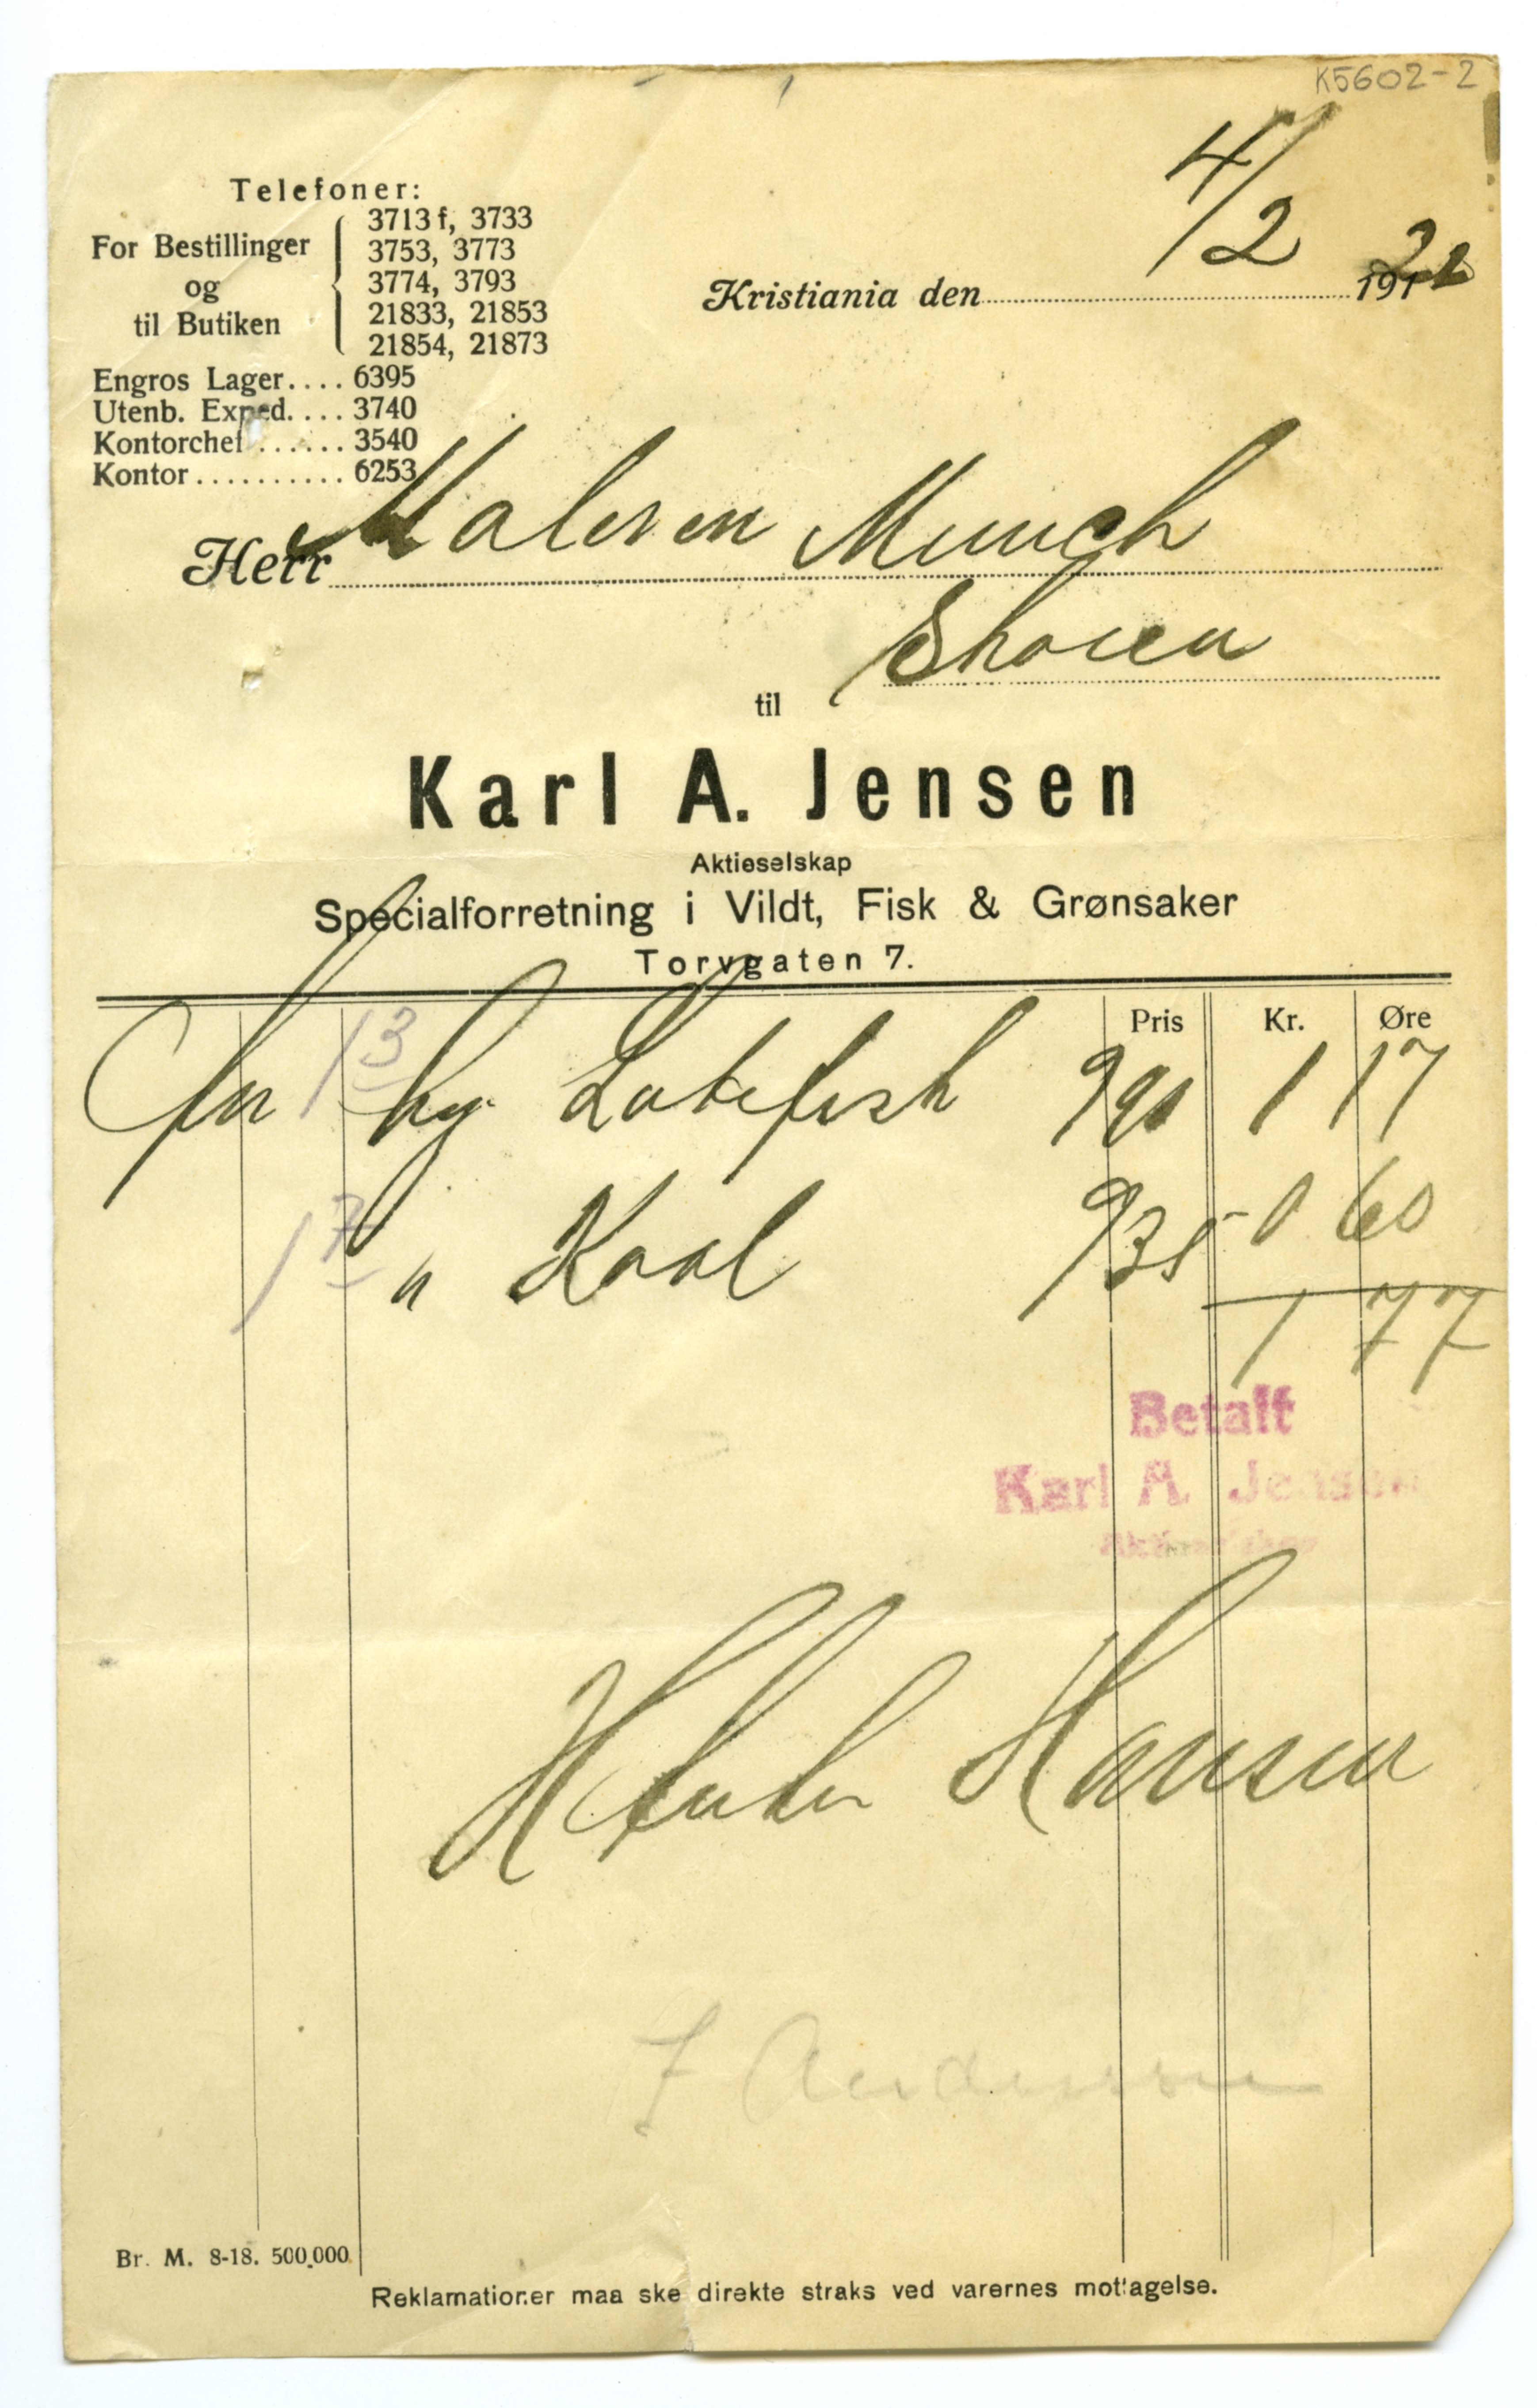 K5602-2
4/2 22
Telefoner:
For Bestillinger og til Butiken
3713 f, 3733
3753, 3773
3774, 3793
21833, 21853
21854, 21873
Kristiania den 191
Engros Lager.... 6395
Utenb. Exped. ... 3740
Kontorchef ...... 3540
Kontor .......... 6253
Herr Maleren Munch
Skøien
til
Karl A. Jensen
Aktieselskap
Specialforretning i Vildt, Fisk & Grønsaker
Torvgaten 7.
Pris Kr. Øre
13 kg Lutefisk 90 1 17
17 " Kaal 35 0 60
1 77
Betalt
Karl A. Jensen
Aktieselskap
Hansen
Andersen
Br. M. 8-18. 500.000.
Reklamationer maa ske direkte straks ved varernes mottagelse.